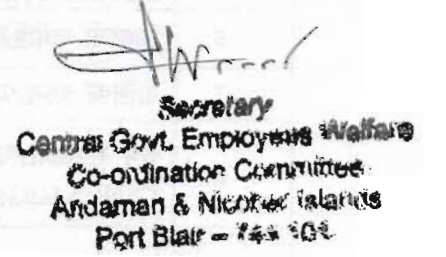 Secretary
Central Govt. Employees Welfare
Co-ordination Committee
Andaman & Nicobar Islands
Port Blair –